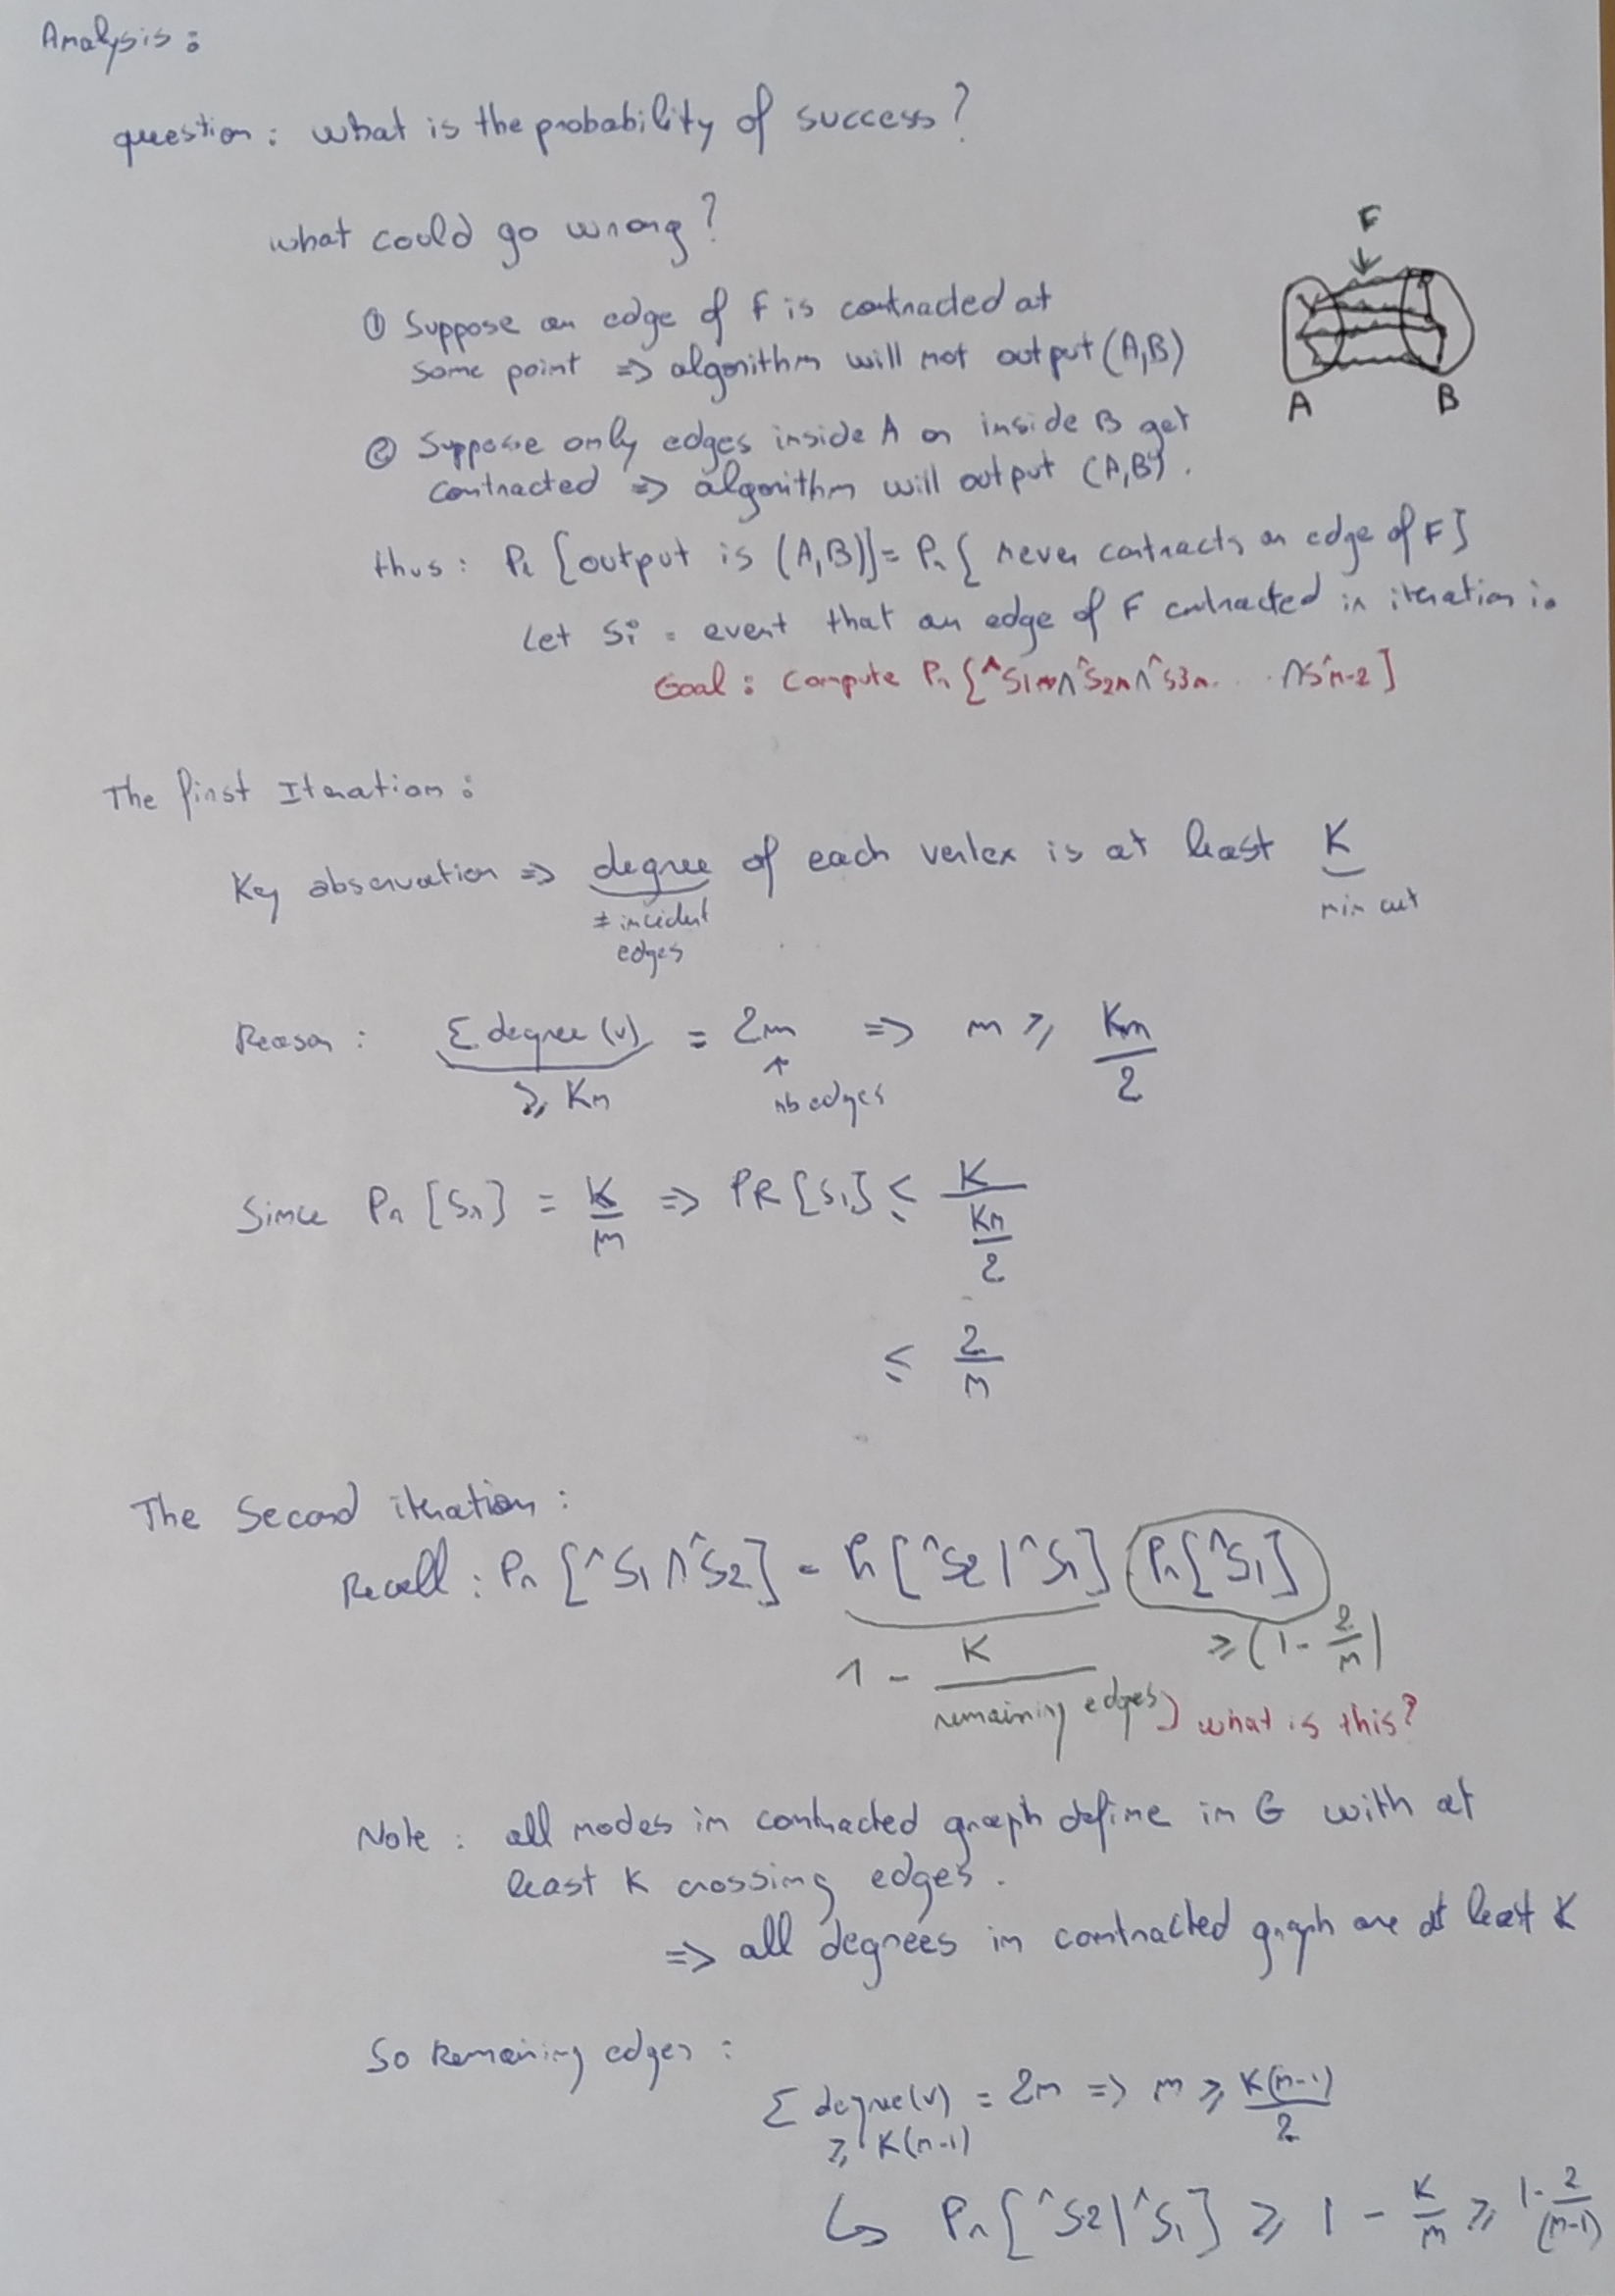 Analysis:
question: what is the probability of success?
what could go wrong?
F
① Suppose an edge of F is contracted at
some point => algorithm will not output (A,B)
A B
② Suppose only edges inside A or inside B get
contracted => algorithm will output (A,B).
thus: Pr [output is (A,B)] = Pr [never contracts an edge of F]
Let Si = event that an edge of F contracted in iteration i.
Goal: Compute Pr [^S1 ∧ ^S2 ∧ ^S3 ∧ . . . ∧ S^n-2]
The first Iteration:
Key observation => degree of each vertex is at least K
≠ incident
edges
min cut
Reason: Σ degree (v) = 2m => m ≥ Kn/2
≥ Kn
↑
nb edges
Since Pr [S1] = K/m => PR [S1] ≤ K/(Kn/2)
≤ 2/n
The Second iteration:
Recall: Pr [^S1 ∧ ^S2] = Pr [^S2 | ^S1] Pr [^S1]
1 - K/remaining edges) what is this?
≥ (1 - 2/n)
Note: all nodes in contracted graph define in G with at
least K crossing edges.
=> all degrees in contracted graph are at least K
So Remaining edges:
Σ degree(v) = 2m => m ≥ K(n-1)/2
≥ K(n-1)
↳ Pr [^S2 | ^S1] ≥ 1 - K/m ≥ 1 - 2/(n-1)